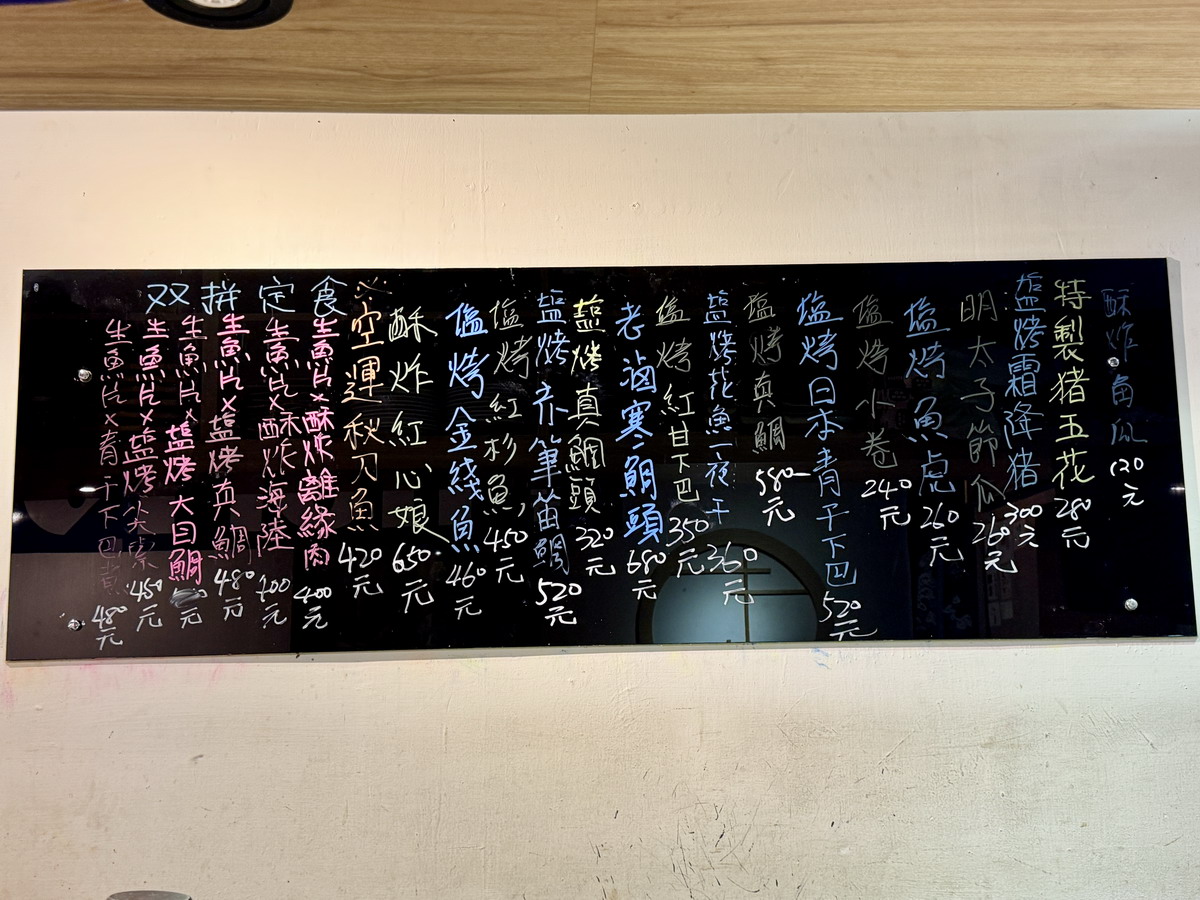 酥炸魚瓜 120元
特製豬五花 280元
塩烤霜降猪 300元
明太子節瓜 260元
塩烤魚虎 260元
塩烤小卷 240元
塩烤日本青干下巴 520元
塩烤真鯛 580
塩烤花魚一夜干 360元
塩烤紅甘下巴 350元
老滷寒鯛頭 680元
塩烤真鯛頭 320元
塩烤赤筆笛鯛 520元
塩烤紅杉魚 450元
塩烤金綫魚 460元
酥炸紅心娘 650元
空運秋刀魚 420元
双拼定食
生魚片×酥炸離緣肉 400元
生魚片×酥炸海陸 400元
生魚片×塩烤真鯛 480元
生魚片×塩烤大目鯛 元
生魚片×塩烤 450元
生魚片×青干下巴煮 480元